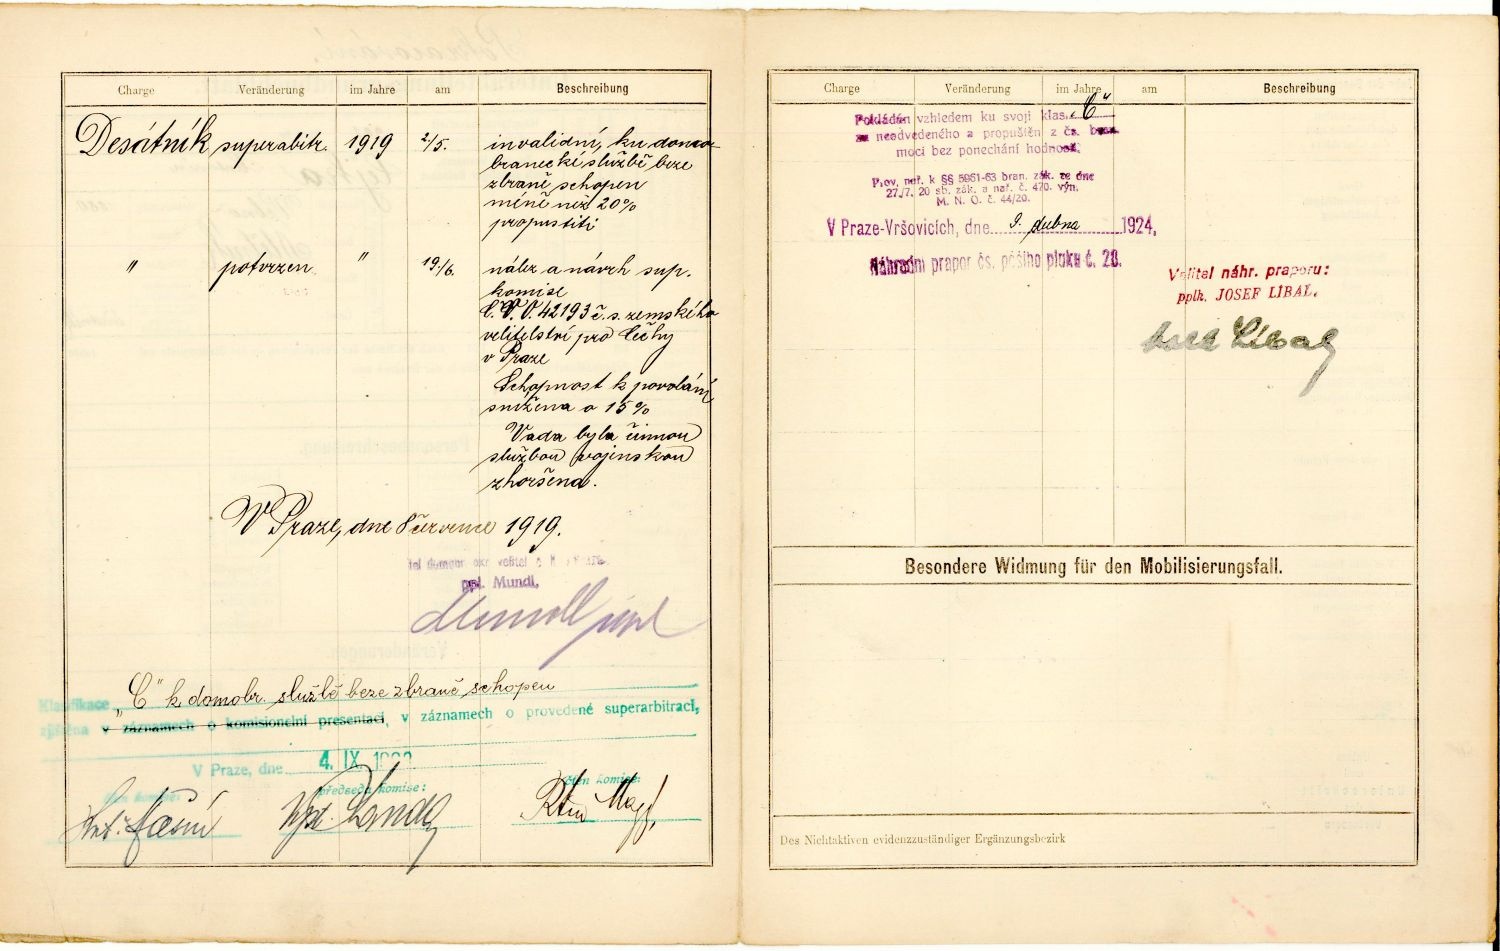 Charge Veränderung im Jahre am Beschreibung
Desátník superabitr. 1919 2/5. invalidní, ku domo-
branecké službě beze
zbraně schopen
méně než 20%
propustiti
" potvrzen " 19/6. nález a návrh sup.
komise
42193 č. s. zemského
velitelství pro Čechy
v Praze
Schopnost k povolání
snížena o 15%
Vada byla činnou
službou vojenskou
zhoršena.
V Praze, dne července 1919.
ppl. Mundl,
Klasifikace „C" k domobr. službě beze zbraně schopen
zjištěna v záznamech o komisionelní presentaci, v záznamech o provedené superarbitraci,
V Praze, dne 4. IX.
člen komise: předseda komise: člen komise:
Charge Veränderung im Jahre am Beschreibung
Pokládán vzhledem ku svoji klas. „C"
za neodvedeného a propuštěn z čs. bran.
moci bez ponechání hodnosti.
Prov. nař. k §§ 5961-63 bran. zák. ze dne
27./7. 20 sb. zák. a nař. č. 470. výn.
M. N. O. č. 44/20.
V Praze-Vršovicích, dne 9. dubna 1924,
Náhradní prapor čs. pěšího pluku č. 28.
Velitel náhr. praporu:
pplk. JOSEF LÍBAL.
Líbal
Besondere Widmung für den Mobilisierungsfall.
Des Nichtaktiven evidenzzuständiger Ergänzungsbezirk